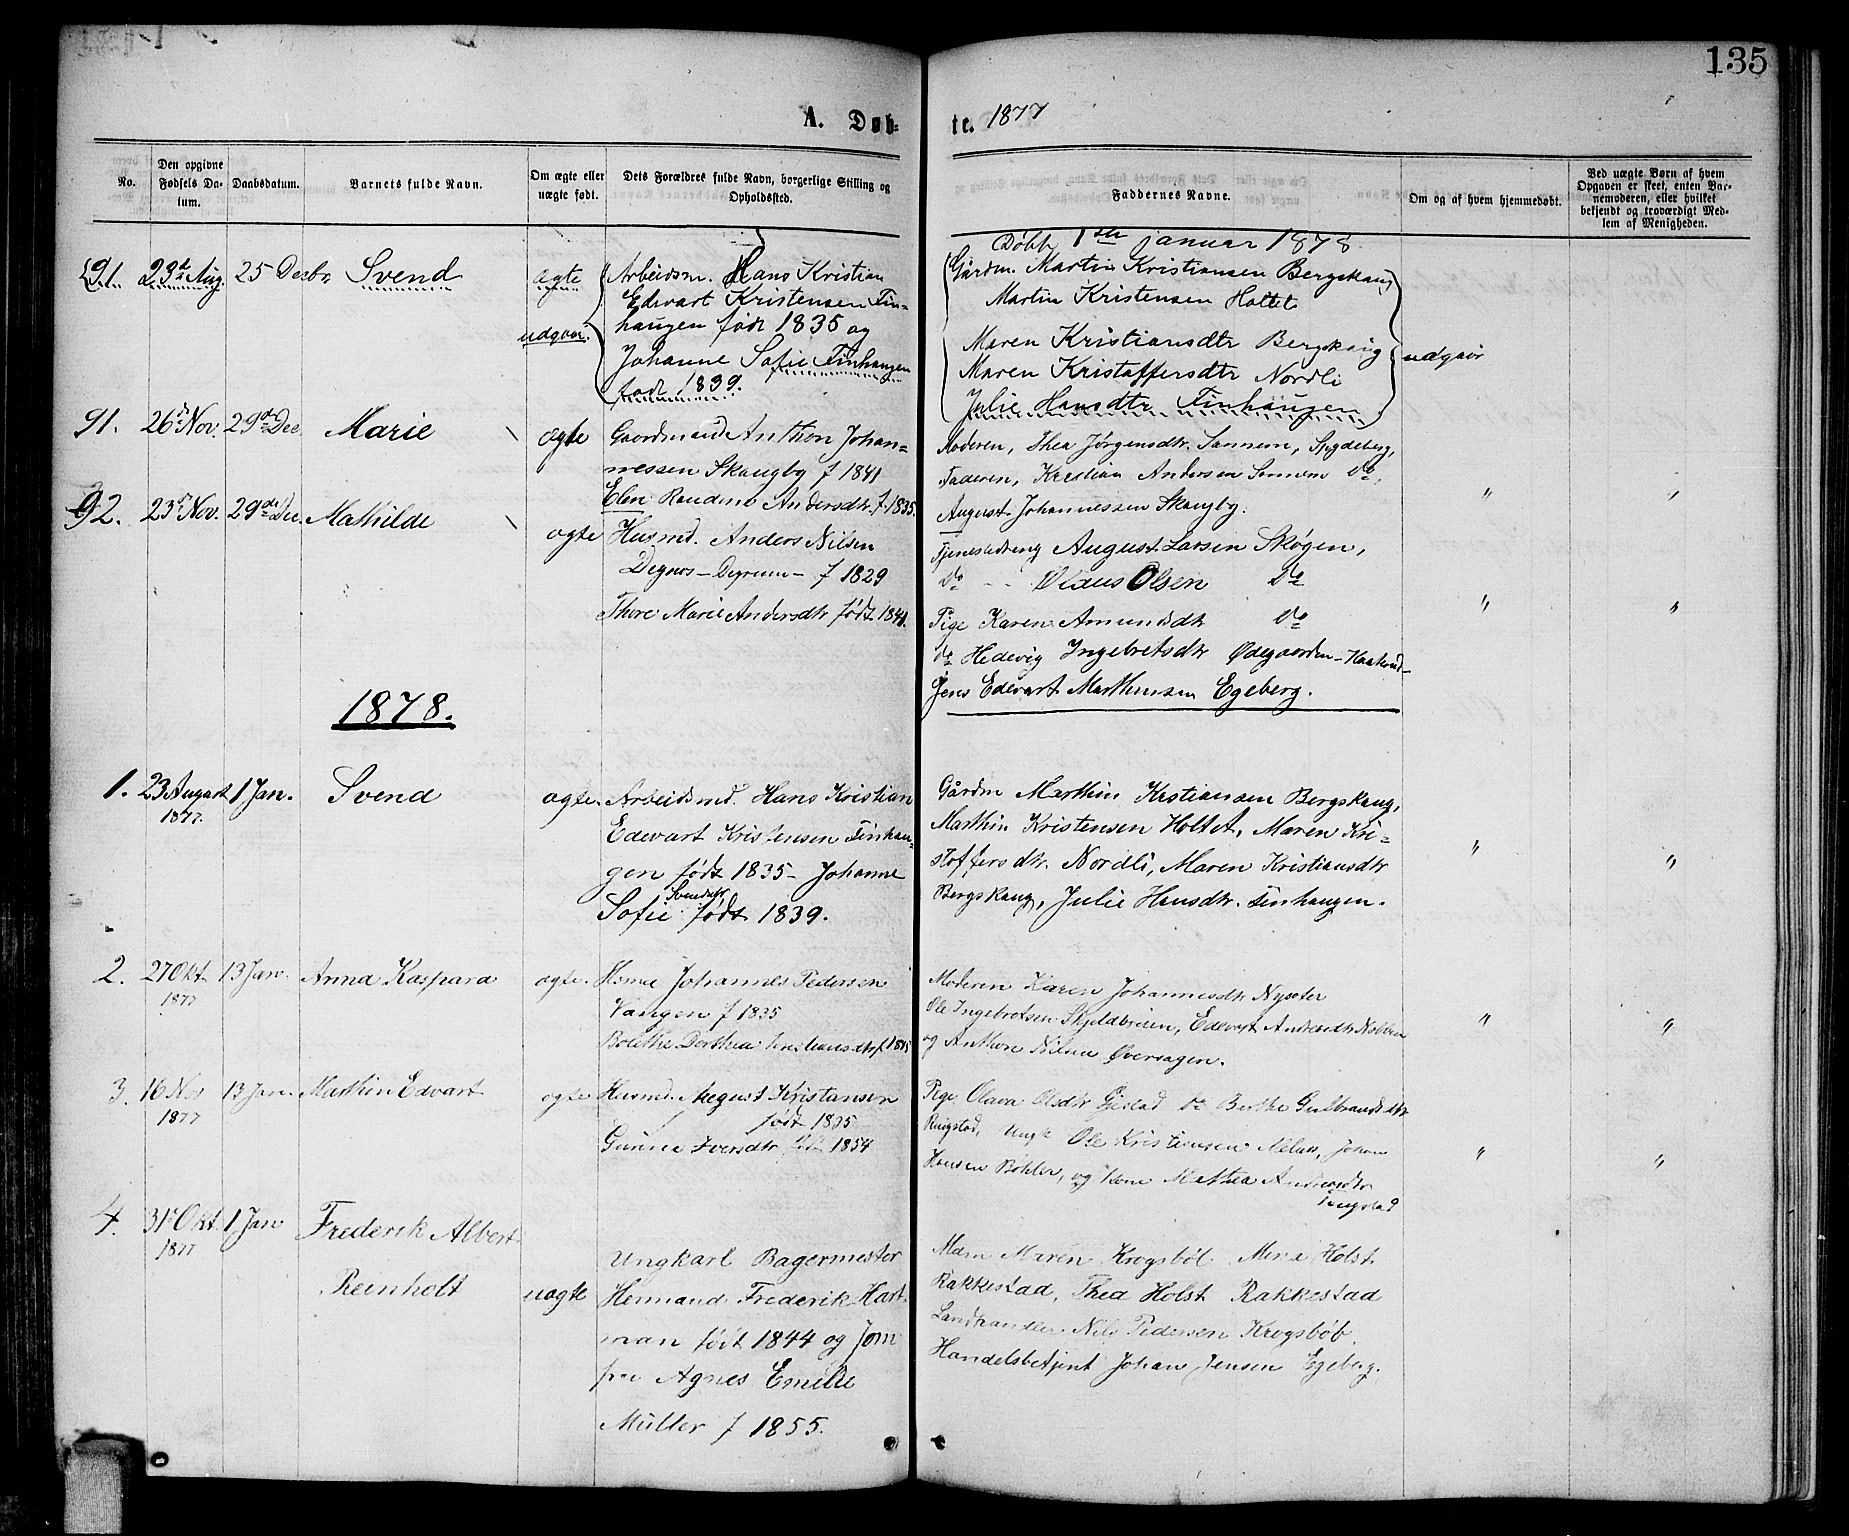 135
A. Døb-
te. 1877
No.
Den opgivne Fødsels Da-
tum.
Daabsdatum.
Barnets fulde Navn.
Om ægte eller
uægte født.
Dets Forældres fulde Navn, borgerlige Stilling og
Opholdssted.
Faddernes Navne.
Om og af hvem hjemmedøbt.
Ved uægte Børn af hvem
Opgaven er skeet, enten Bar-
nemoderen, eller hvilket
bekjendt og troværdigt Med-
lem af Menigheden.
91. 23de Aug. 25 Decbr Svend ægte
udgaar.
Arbeidsm. Hans Kristian
Edevart Kristensen Tin-
haugen født 1835 og
Johanne Sofie Tinhaugen
født 1839.
Døbt 1ste januar 1878.
Gårdm. Martin Kristiansen Bergskaug
Martin Kristensen Holtet
Maren Kristiansdtr Bergskaug
Maren Kristoffersdtr Nordli
Julie Hansdtr Tinhaugen
udgaar
91. 26de Nov. 29de Dec. Marie ægte
Gaardmand Anthon Johan-
nessen Skaugby f 1841
Elen Randine Andersdtr. f. 1835.
Moderen, Thea Jørgensdtr. Sannem, Spydeberg,
Faderen, Kristian Andersen Sannem do,
August Johannessen Skaugby.
" "
92. 23de Nov. 29de Dec. Mathilde ægte
Husmd. Anders Nilsen
Degnes - f 1829
Thore Marie Andersdtr født 1841.
Tjenestedreng August Larsen Skøgen,
do - - Olaus Olsen do
Pige Karen Amundsdtr do
do Hedevig Ingebretsdtr Ødegaarden
Jens Edevart Marthinsen Egeberg.
" "
1878.
1. 23 August 1 Jan. Svend ægte.
1877.
Arbeidsmd. Hans Kristian
Edevart Kristensen Tinhau-
gen født 1835 - Johanne
Svendsdtr
Sofie født 1839.
Gårdm Marthin Kristiansen Bergskaug,
Marthin Kristensen Holtet, Maren Kri-
stoffersdtr. Nordli, Maren Kristiansdtr
Bergskaug, Julie Hansdtr. Tinhaugen.
" "
2. 27 Okt. 13 Jan. Anna Kaspara ægte.
1877
Johannes Pedersen
Vangen f 1835
Bolethe Dorthea
Moderen Karen Johannesdtr Nyseter
Ole Ingebretsen Skjeldbreien, Edevart
og Anthon Nilsen Øversagen.
" "
3. 16 Nov 13 Jan. Marthin Edvart ægte
1877
Husmd. August Kristiansen
født 1835
Gunne Iversdtr 1854
Pige Olava Olsdtr do Berthe Gulbrandsdtr
Ringstad, Ungk Ole Kristiansen Johan
Hansen Bøhler, og Kone Mathea Andersdtr
" "
4. 31te Okt. 1 Jan Frederik Albert
1877
Reinholt uægte
Ungkarl Bagermester
Hermand Frederik Hart
man født 1844 og Jom
fru Agnes Emilie
Müller f 1855.
Mdm Maren Krogsbøl Mina Holst
Rakkestad, Thea Holst Rakkestad
Landhandler Nils Pedersen Krogsbøl
Handelsbetjent Johan Jensen Egeberg.